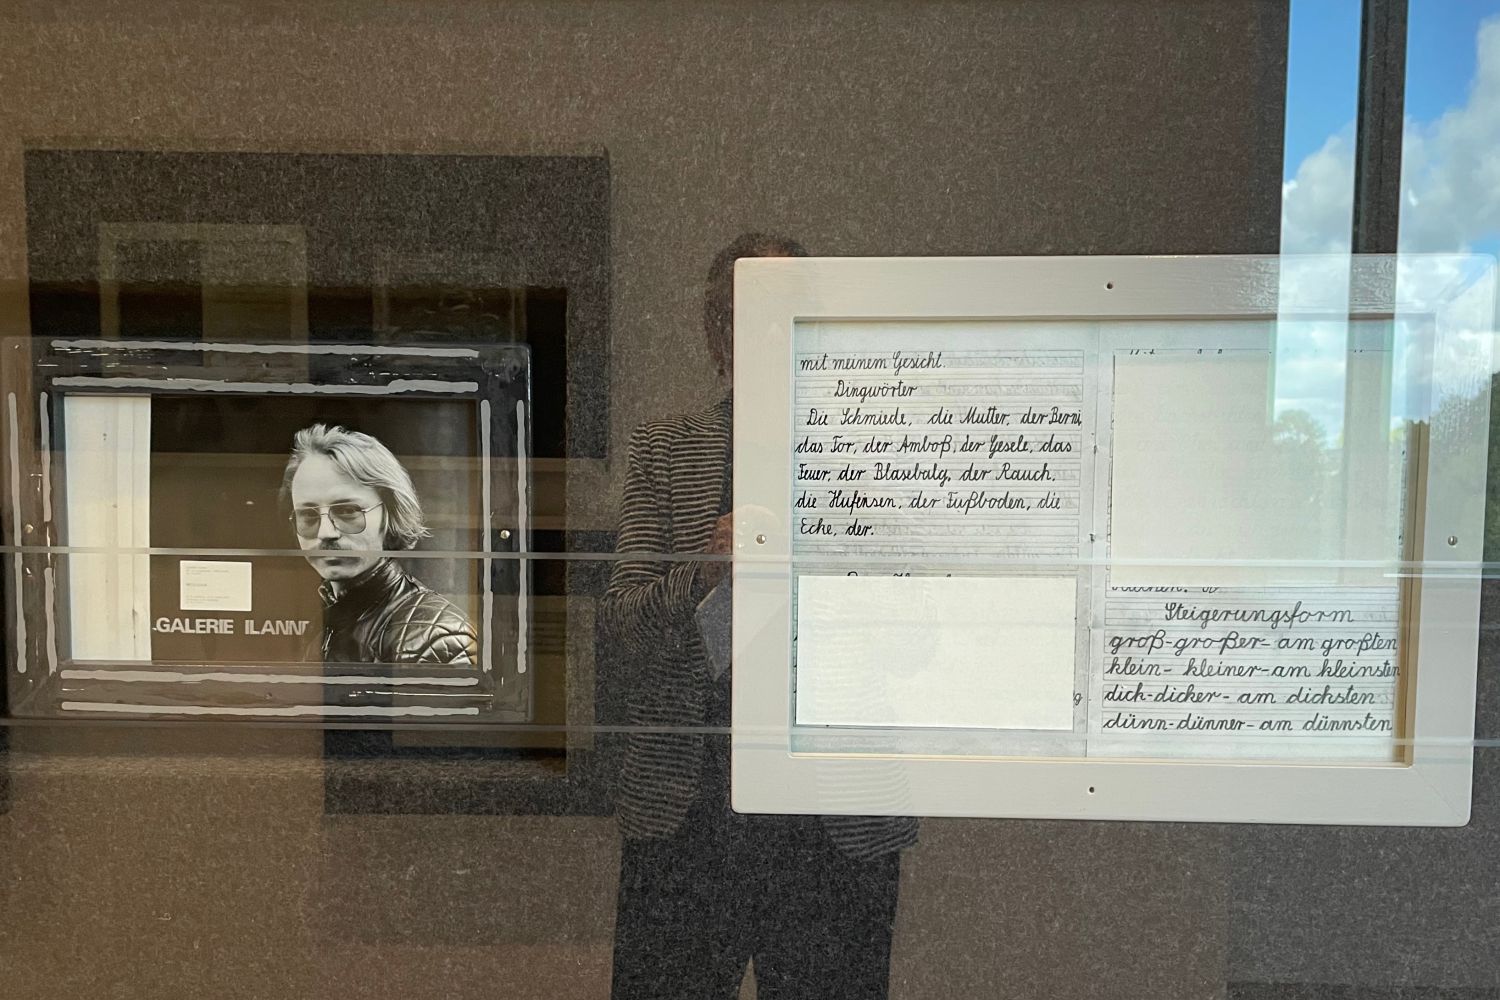 GALERIE ILANN
mit meinem Gesicht.
Dingwörter
Die Schmiede, die Mutter, der Berni,
das Tor, der Amboß, der Gesele, das
Feuer, der Blasebalg, der Rauch,
die Hufeisen, der Fußboden, die
Eche, der.
Steigerungsform
groß-großer- am großten
klein- kleiner-am kleinsten
dich-dicker- am dichsten
dünn-dünner-am dünnsten